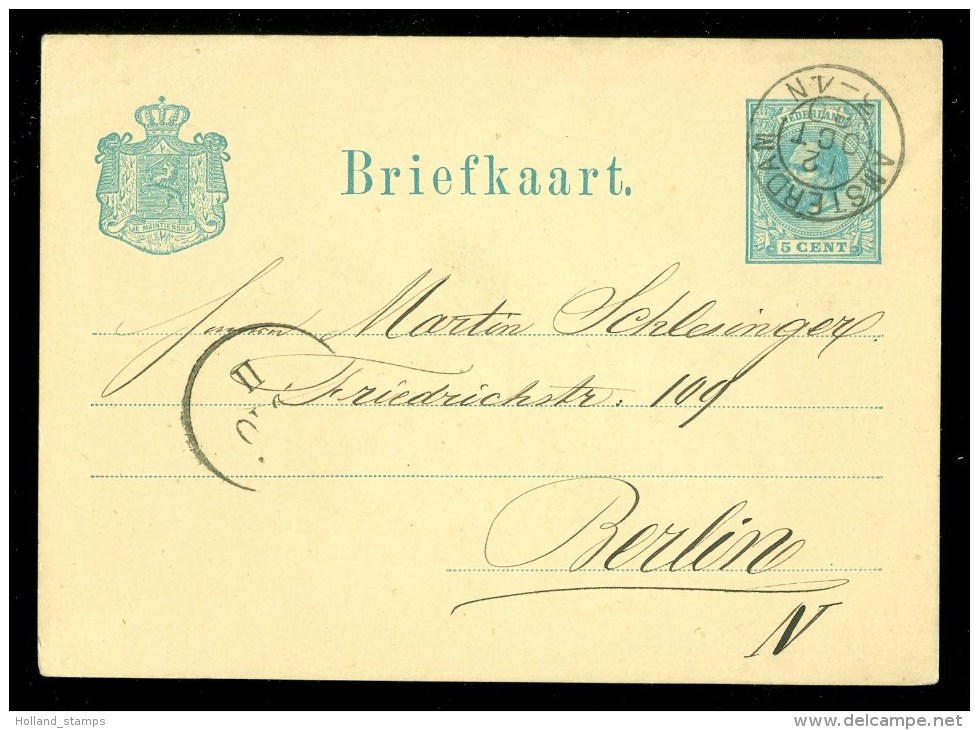 Briefkaart.
NEDERLAND
5 CENT
JE MAINTIENDRAI
AMSTERDAM
12
OCT
Martin Schlesinger
Friedrichstr: 109
Berlin
N
II
Holland_stamps
www.delcampe.net